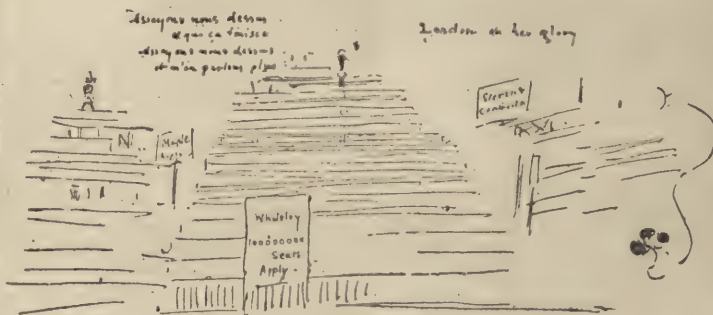 Asseyons nous dessus
et que ça finisse
Asseyons nous dessus
et n'en parlons plus
London in her glory
Maple
Whiteley
Seats
Apply